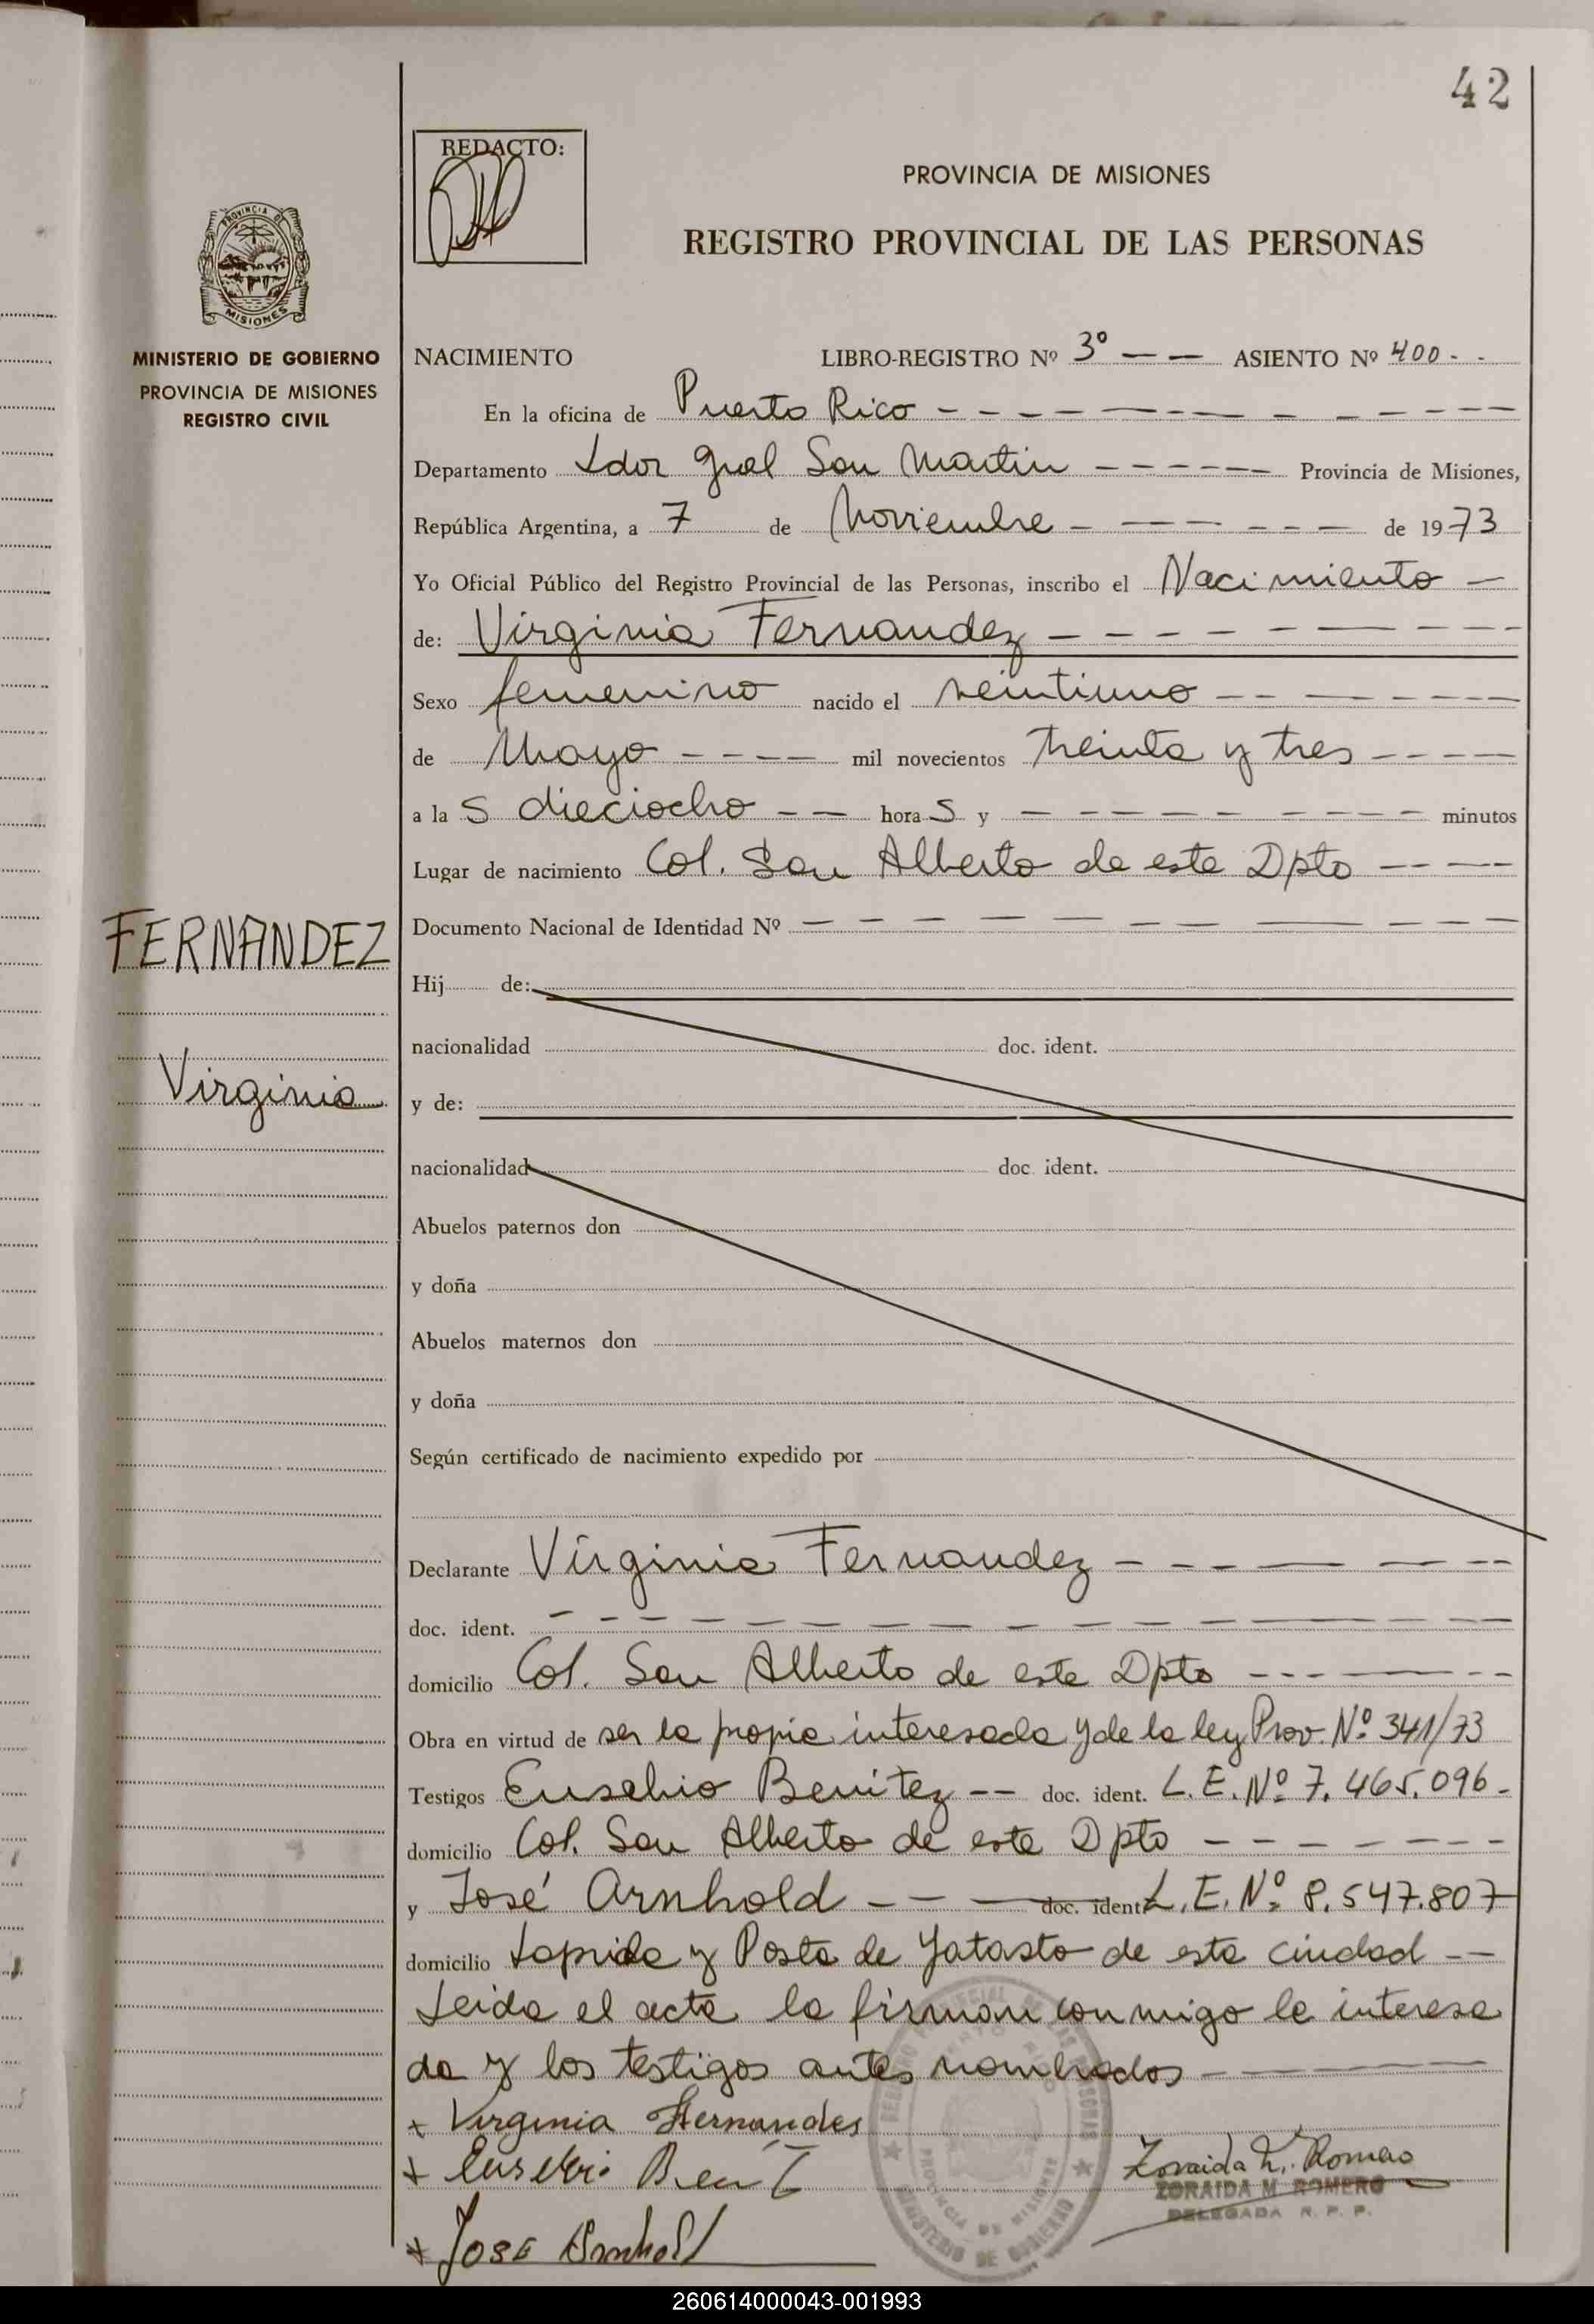 42
REDACTO:
PROVINCIA DE MISIONES
REGISTRO PROVINCIAL DE LAS PERSONAS
PROVINCIA DE
MISIONES
MINISTERIO DE GOBIERNO
PROVINCIA DE MISIONES
REGISTRO CIVIL
NACIMIENTO LIBRO-REGISTRO Nº 3º — — ASIENTO Nº 400 - -
En la oficina de Puerto Rico
Departamento Ldor Gral San Martin Provincia de Misiones,
República Argentina, a 7 de Noviembre de 1973
Yo Oficial Público del Registro Provincial de las Personas, inscribo el Nacimiento
de: Virginia Fernandez
Sexo femenino nacido el veintiuno
de Mayo mil novecientos treinta y tres
a la s dieciocho hora s y minutos
Lugar de nacimiento Col. San Alberto de este Dpto
Documento Nacional de Identidad Nº
FERNANDEZ
Virginia
Hij de:
nacionalidad doc. ident.
y de:
nacionalidad doc. ident.
Abuelos paternos don
y doña
Abuelos maternos don
y doña
Según certificado de nacimiento expedido por
Declarante Virginia Fernandez
doc. ident.
domicilio Col. San Alberto de este Dpto
Obra en virtud de ser la propia interesada y de la ley Prov. Nº 341/73
Testigos Eusebio Benitez -- doc. ident. L. E. Nº 7.465.096 -
domicilio Col. San Alberto de este Dpto
y José Arnhold doc. ident. L. E. Nº 8.547.807
domicilio Laprida y Posta de Yatasto de esta ciudad
Leida el acta la firman conmigo la interesa
da y los testigos antes nombrados
+ Virginia Hernandes
+ Eusebio Benit
+ José Arnhold
Zoraida M. Romero
ZORAIDA M. ROMERO
DELEGADA R. P. P.
PROVINCIA DE MISIONES
MINISTERIO DE GOBIERNO
260614000043-001993